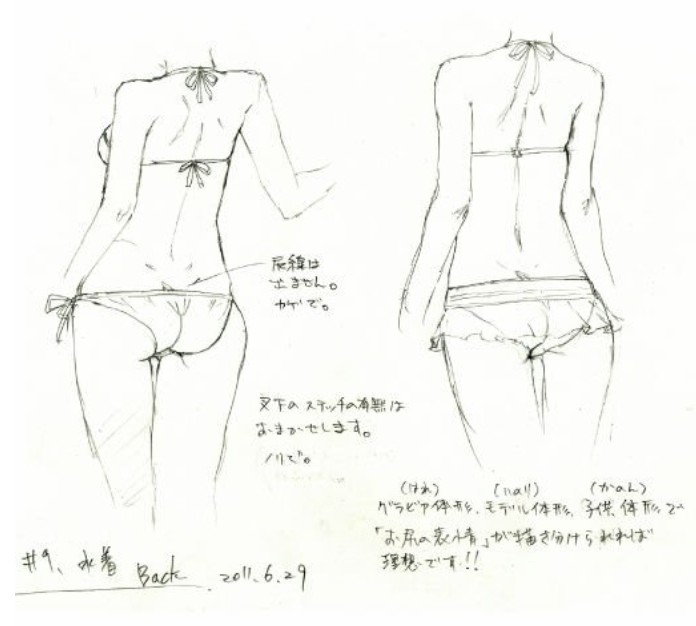 尻線は
出ません。
カゲで。
又下のステッチの有無は
おまかせします。
ノリで。
(はれ) (inori) (かのん)
グラビア体形、モデル体形、子供体形で
「お尻の表情」が描き分けられれば
理想です!!
#9、水着 Back 2011.6.29